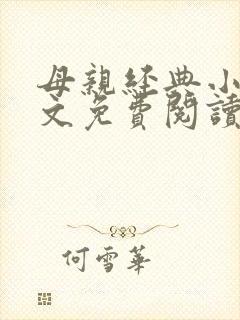 母親經典小
文免費閱讀
何雪華